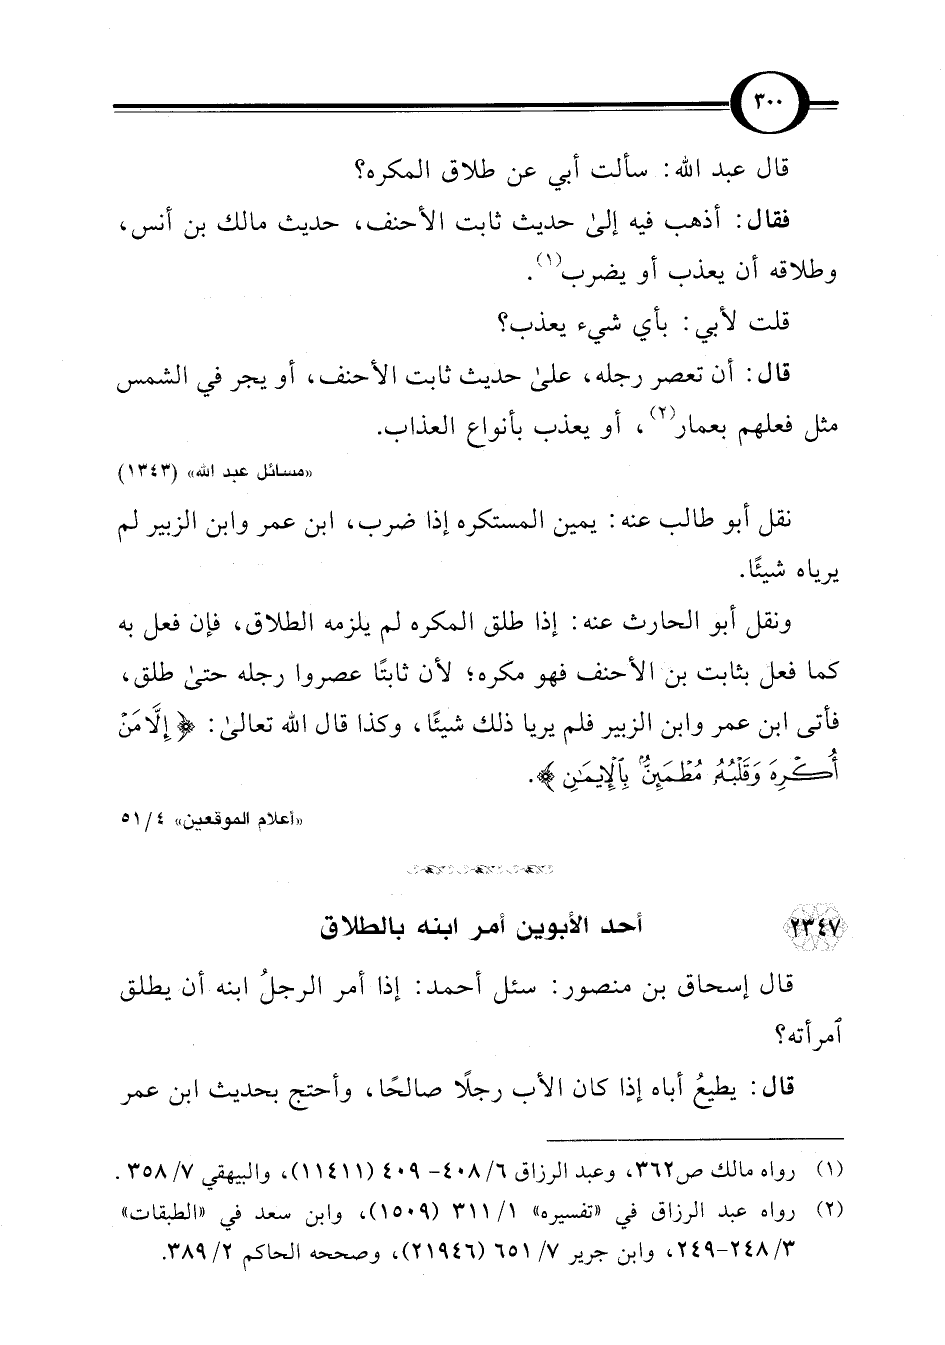 ٣٠٠
قال عبد الله: سألت أبي عن طلاق المكره؟
فقال: أذهب فيه إلىٰ حديث ثابت الأحنف، حديث مالك بن أنس،
وطلاقه أن يعذب أو يضرب(١).
قلت لأبي: بأي شيء يعذب؟
قال: أن تعصر رجله، علىٰ حديث ثابت الأحنف، أو يجر في الشمس
مثل فعلهم بعمار(٢)، أو يعذب بأنواع العذاب.
«مسائل عبد الله» (١٣٤٣)
نقل أبو طالب عنه: يمين المستكره إذا ضرب، ابن عمر وابن الزبير لم
يرياه شيئًا.
ونقل أبو الحارث عنه: إذا طلق المكره لم يلزمه الطلاق، فإن فعل به
كما فعل بثابت بن الأحنف فهو مكره؛ لأن ثابتًا عصروا رجله حتىٰ طلق،
فأتى ابن عمر وابن الزبير فلم يريا ذلك شيئًا، وكذا قال الله تعالىٰ: ﴿إِلَّا مَنْ
أُكْرِهَ وَقَلْبُهُۥ مُطْمَئِنٌّۢ بِٱلْإِيمَٰنِ﴾.
«أعلام الموقعين» ٤/ ٥١
٢٣٤٧ أحد الأبوين أمر ابنه بالطلاق
قال إسحاق بن منصور: سئل أحمد: إذا أمر الرجلُ ابنه أن يطلق
ٱمرأته؟
قال: يطيعُ أباه إذا كان الأب رجلًا صالحًا، وأحتج بحديث ابن عمر
(١) رواه مالك ص٣٦٢، وعبد الرزاق ٦/ ٤٠٨- ٤٠٩ (١١٤١١)، والبيهقي ٧/ ٣٥٨.
(٢) رواه عبد الرزاق في «تفسيره» ١/ ٣١١ (١٥٠٩)، وابن سعد في «الطبقات»
٣/ ٢٤٨-٢٤٩، وابن جرير ٧/ ٦٥١ (٢١٩٤٦)، وصححه الحاكم ٢/ ٣٨٩.